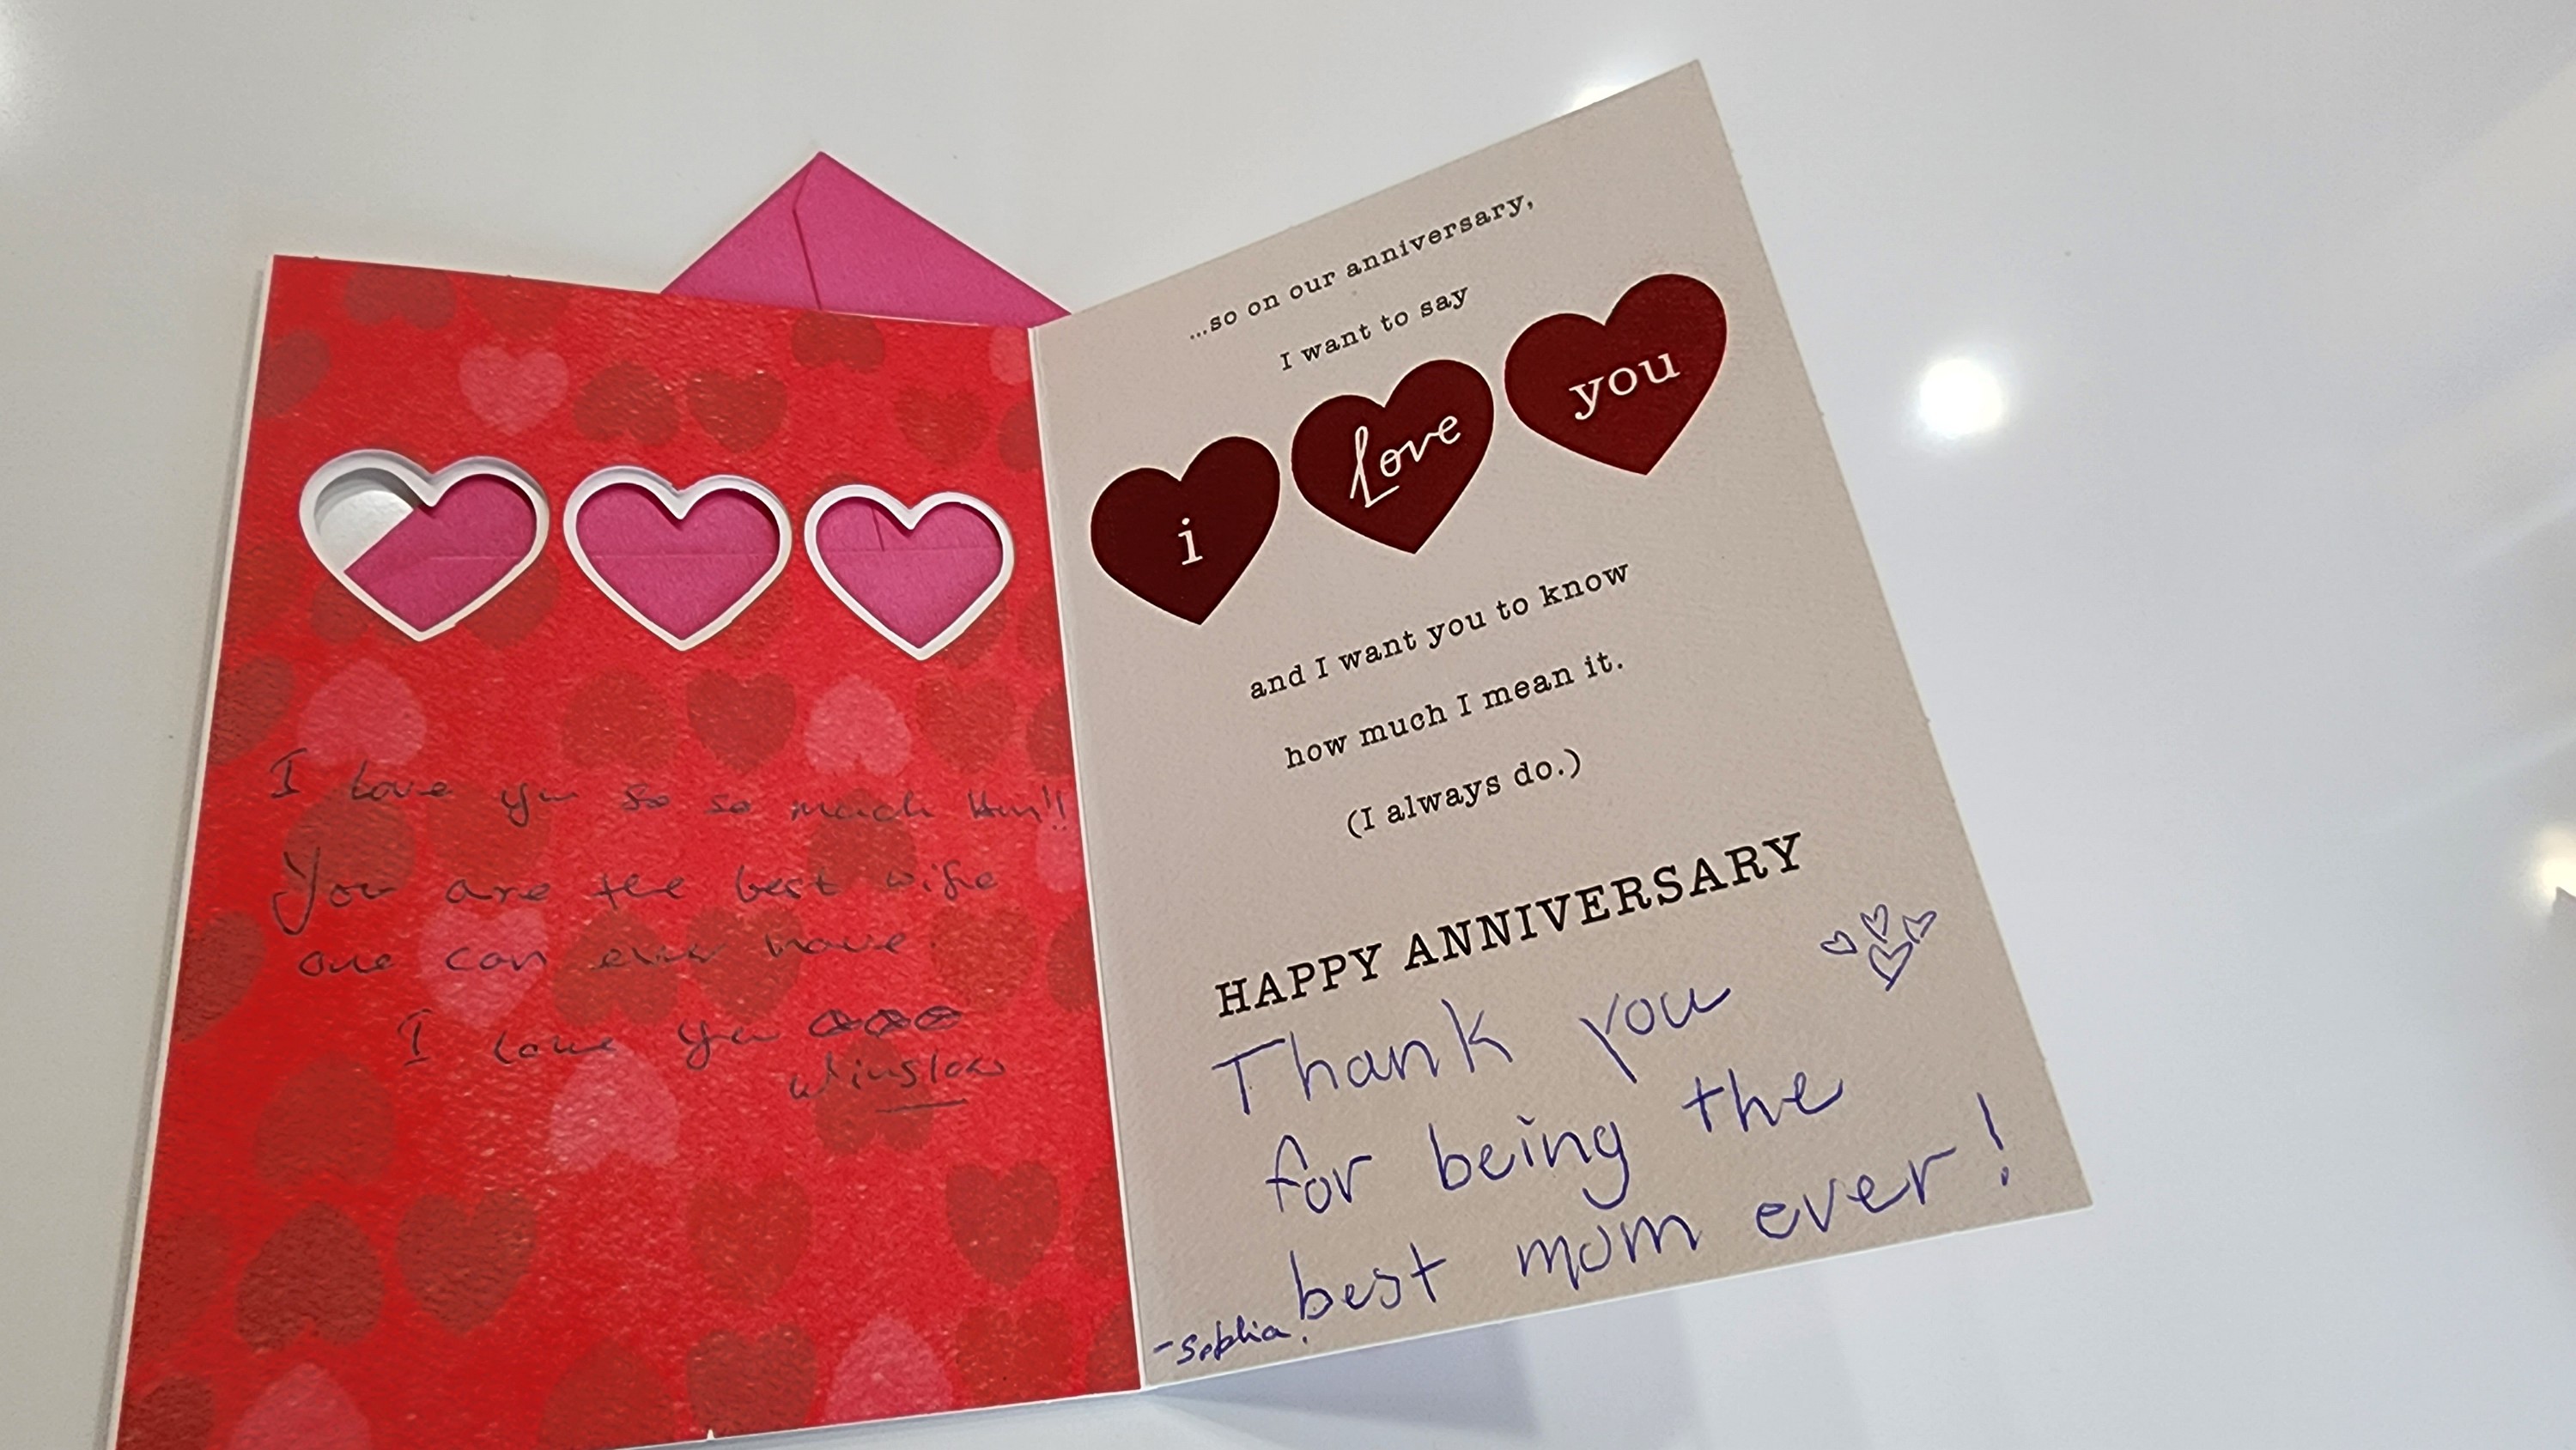 I love you so so much Hun!!
You are the best wife
one can ever have
I love you
Winslow
...so on our anniversary,
I want to say
i Love you
and I want you to know
how much I mean it.
(I always do.)
HAPPY ANNIVERSARY
Thank you
for being the
best mom ever!
-Sophia.